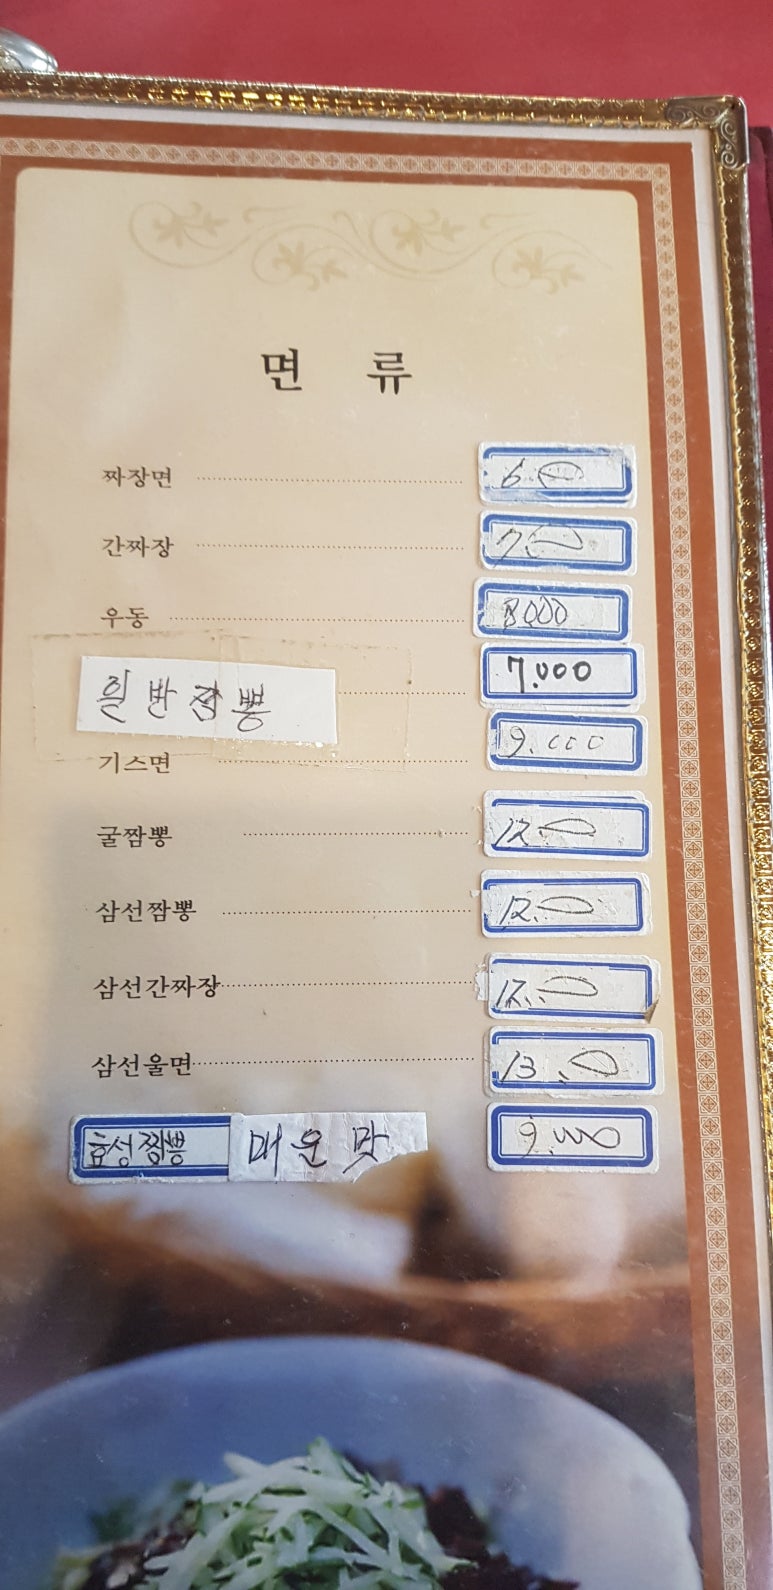 면 류
짜장면 6.000
간짜장 7.000
우동 8000
일반짬뽕 7.000
기스면 9.000
굴짬뽕 12.000
삼선짬뽕 12.000
삼선간짜장 12.000
삼선울면 13.000
효성짬뽕 매운맛 9.000